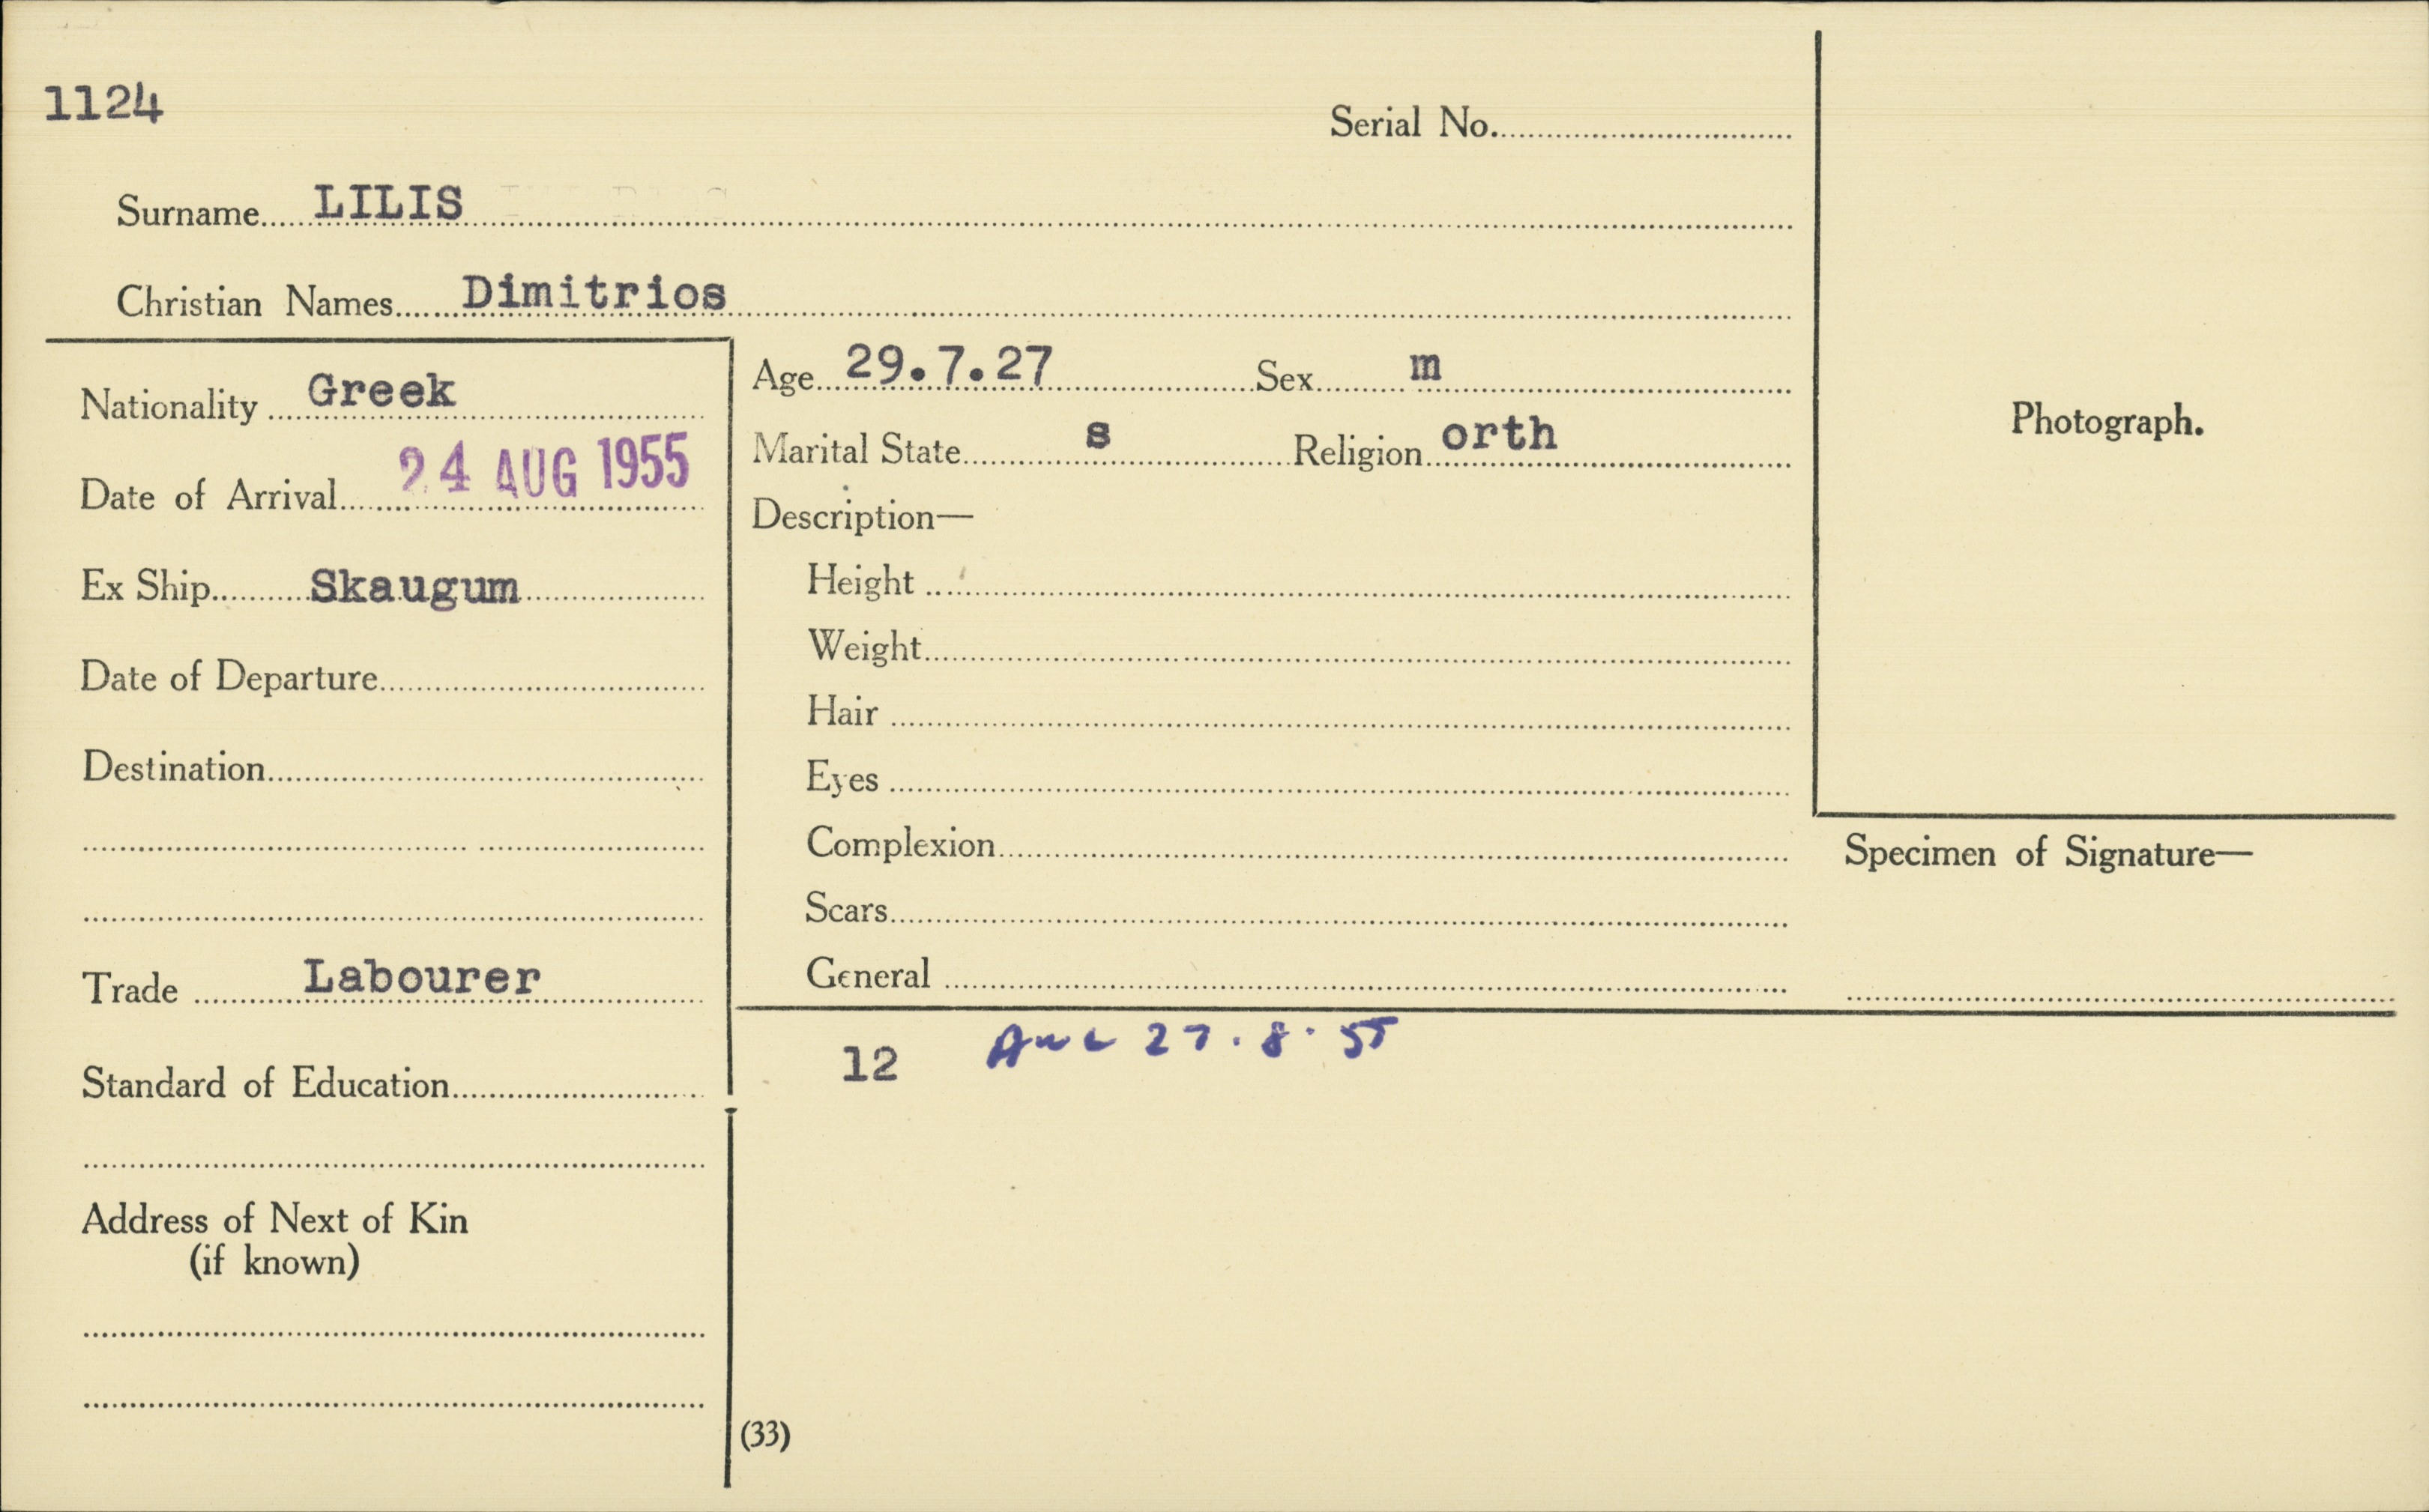 1124
Serial No.
Surname LILIS
Christian Names Dimitrios
Nationality Greek
Date of Arrival 24 AUG 1955
Ex Ship Skaugum
Date of Departure
Destination
Trade Labourer
Standard of Education
Address of Next of Kin
(if known)
Age 29.7.27 Sex m
Marital State s Religion orth
Description—
Height
Weight
Hair
Eyes
Complexion
Scars
General
Photograph.
Specimen of Signature—
12 27.8.55
(33)